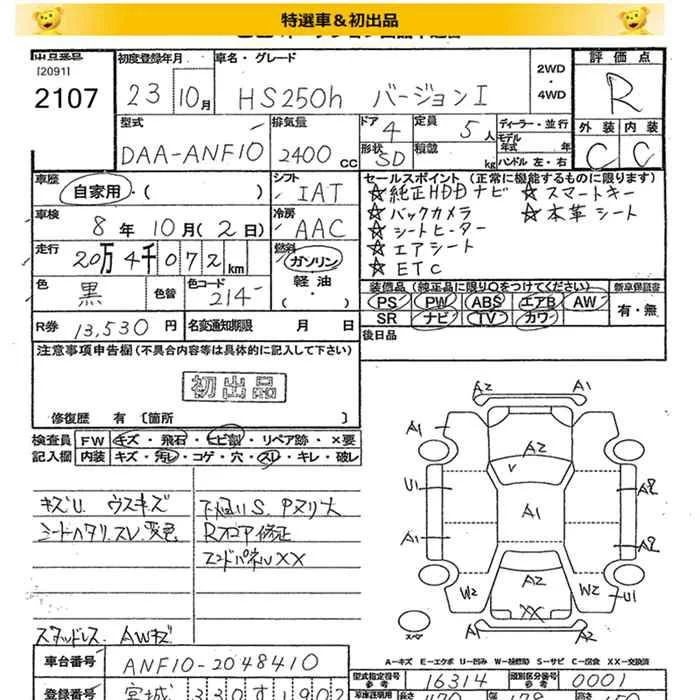 特選車＆初出品
出品番号
[2091]
2107
初度登録年月
23 10月
車名・グレード
HS250h バージョンI
2WD・4WD
評価点
R
外装 内装
C C
型式
DAA-ANF10
排気量
2400 CC
ドア 4
形状 SD
定員 5人
積載 kg
ディーラー・並行
モデル年式 年
ハンドル 左・右
車歴
自家用・( )
シフト
IAT
セールスポイント (正常に機能するものに限ります)
☆純正HDDナビ ☆スマートキー
☆バックカメラ ☆本革シート
☆シートヒーター
☆エアシート
☆ETC
車検
8年10月(2日)
冷房
AAC
走行
20万4千072km
燃料
ガソリン
軽油
・( )
色
黒
色替
色コード
214
装備品(純正品に限り〇をつけてください) 新車保証書
PS PW ABS エアB AW
SR ナビ TV カワ
有・無
R券 13,530円
名変通知期限 月 日
後日品
注意事項申告欄(不具合内容等は具体的に記入して下さい)
初出品
修復歴 有 〔箇所 〕
検査員記入欄
FW キズ・飛石・ヒビ割・リペア跡・×要
内装 キズ・汚レ・コゲ・穴・スレ・キレ・破レ
キズU. ウスキズ
シートヘタリ.スレ.変色
下廻りS. Pヌリ大
Rフロア修正
エンドパネルXX
スタッドレス AWキズ
A2 A1
A1 A2
U1 A1 A2
A1 A2
A2
W2 XX W2 U1
スペア
A1 A2
A-キズ E-エクボ U-凹み W-補修跡 S-サビ C-腐食 XX-交換済
車台番号
ANF10-2048410
型式指定番号 参考
16314
類別区分番号 参考
0001
登録番号
宮城 330す1902